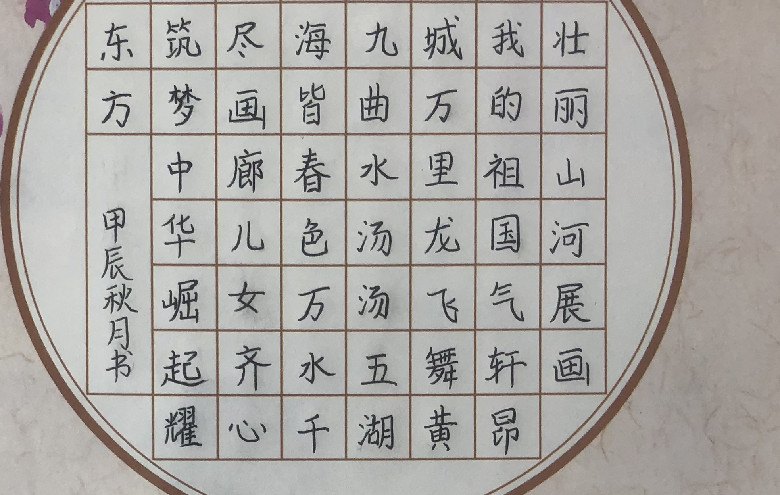 壮丽山河展画
我的祖国气轩昂
城万里龙飞舞黄
九曲水汤汤五湖
海皆春色万水千
尽画廊儿女齐心
筑梦中华崛起耀
东方
甲辰秋月书